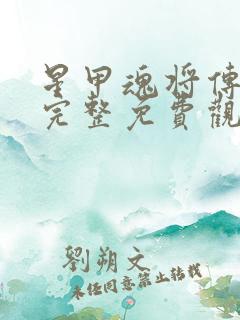 星甲魂将傳
完整免費觀
劉朔文
未经同意禁止转载